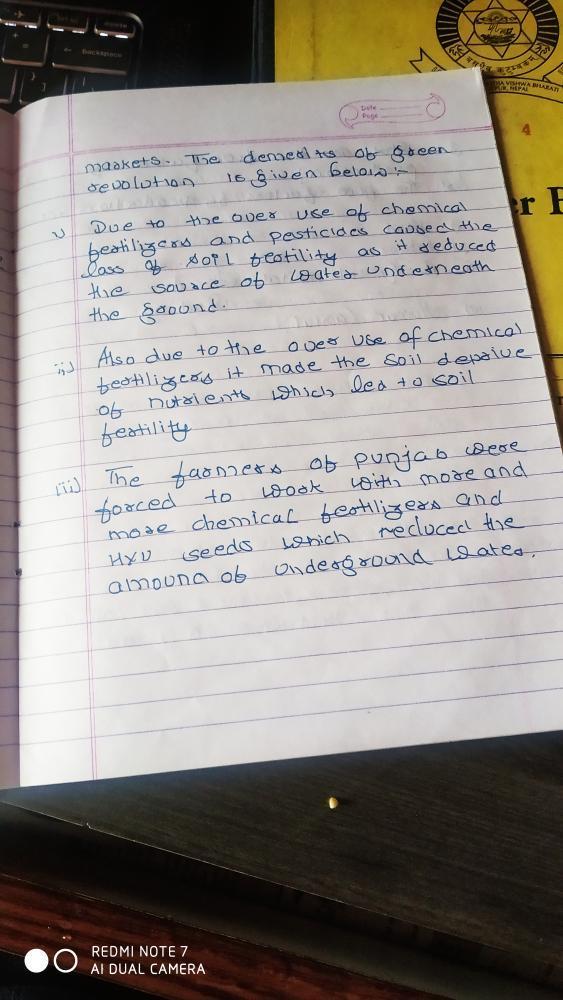 Backspace
4
Date
Page
r
markets. The demerits of green
revolution is given below:-
i) Due to the over use of chemical
fertilizers and pesticides caused the
loss of soil fertility as it reduced
the source of water underneath
the ground.
ii) Also due to the over use of chemical
fertilizers it made the soil deprive
of nutrients which led to soil
fertility
(iii) The farmers of punjab were
forced to work with more and
more chemical fertilizers and
HYV seeds which reduced the
amouna of underground water.
REDMI NOTE 7
AI DUAL CAMERA